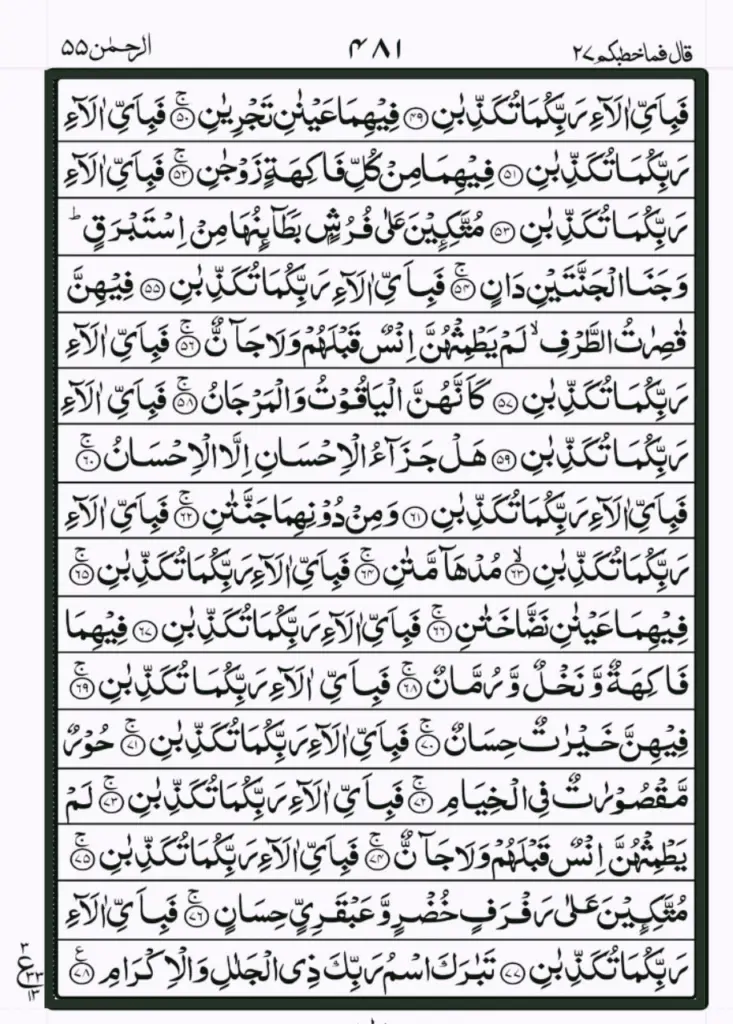 قال فماخطبکم ۲۷ ۴۸۱ الرحمٰن ۵۵
فَبِاَىِّ اٰلَآءِ رَبِّكُمَا تُكَذِّبٰنِ ۴۹ فِيْهِمَا عَيْنٰنِ تَجْرِيٰنِ ۚ ۵۰ فَبِاَىِّ اٰلَآءِ
رَبِّكُمَا تُكَذِّبٰنِ ۵۱ فِيْهِمَا مِنْ كُلِّ فَاكِهَةٍ زَوْجٰنِ ۚ ۵۲ فَبِاَىِّ اٰلَآءِ
رَبِّكُمَا تُكَذِّبٰنِ ۵۳ مُتَّكِـِٕيْنَ عَلٰى فُرُشٍۢ بَطَآىِٕنُهَا مِنْ اِسْتَبْرَقٍ ؕ
وَجَنَا الْجَنَّتَيْنِ دَانٍ ۚ ۵۴ فَبِاَىِّ اٰلَآءِ رَبِّكُمَا تُكَذِّبٰنِ ۵۵ فِيْهِنَّ
قٰصِرٰتُ الطَّرْفِ ۙ لَمْ يَطْمِثْهُنَّ اِنْسٌ قَبْلَهُمْ وَلَا جَآنٌّ ۚ ۵۶ فَبِاَىِّ اٰلَآءِ
رَبِّكُمَا تُكَذِّبٰنِ ۵۷ كَاَنَّهُنَّ الْيَاقُوْتُ وَالْمَرْجَانُ ۚ ۵۸ فَبِاَىِّ اٰلَآءِ
رَبِّكُمَا تُكَذِّبٰنِ ۵۹ هَلْ جَزَآءُ الْاِحْسَانِ اِلَّا الْاِحْسَانُ ۚ ۶۰
فَبِاَىِّ اٰلَآءِ رَبِّكُمَا تُكَذِّبٰنِ ۶۱ وَمِنْ دُوْنِهِمَا جَنَّتٰنِ ۚ ۶۲ فَبِاَىِّ اٰلَآءِ
رَبِّكُمَا تُكَذِّبٰنِ ۙ ۶۳ مُدْهَآمَّتٰنِ ۚ ۶۴ فَبِاَىِّ اٰلَآءِ رَبِّكُمَا تُكَذِّبٰنِ ۚ ۶۵
فِيْهِمَا عَيْنٰنِ نَضَّاخَتٰنِ ۚ ۶۶ فَبِاَىِّ اٰلَآءِ رَبِّكُمَا تُكَذِّبٰنِ ۶۷ فِيْهِمَا
فَاكِهَةٌ وَّنَخْلٌ وَّرُمَّانٌ ۚ ۶۸ فَبِاَىِّ اٰلَآءِ رَبِّكُمَا تُكَذِّبٰنِ ۚ ۶۹
فِيْهِنَّ خَيْرٰتٌ حِسَانٌ ۚ ۷۰ فَبِاَىِّ اٰلَآءِ رَبِّكُمَا تُكَذِّبٰنِ ۚ ۷۱ حُوْرٌ
مَّقْصُوْرٰتٌ فِى الْخِيَامِ ۚ ۷۲ فَبِاَىِّ اٰلَآءِ رَبِّكُمَا تُكَذِّبٰنِ ۚ ۷۳ لَمْ
يَطْمِثْهُنَّ اِنْسٌ قَبْلَهُمْ وَلَا جَآنٌّ ۚ ۷۴ فَبِاَىِّ اٰلَآءِ رَبِّكُمَا تُكَذِّبٰنِ ۚ ۷۵
مُتَّكِـِٕيْنَ عَلٰى رَفْرَفٍ خُضْرٍ وَّعَبْقَرِىٍّ حِسَانٍ ۚ ۷۶ فَبِاَىِّ اٰلَآءِ
رَبِّكُمَا تُكَذِّبٰنِ ۷۷ تَبٰرَكَ اسْمُ رَبِّكَ ذِى الْجَلٰلِ وَالْاِكْرَامِ ع ۷۸
۳
ع ۳۳
۱۳